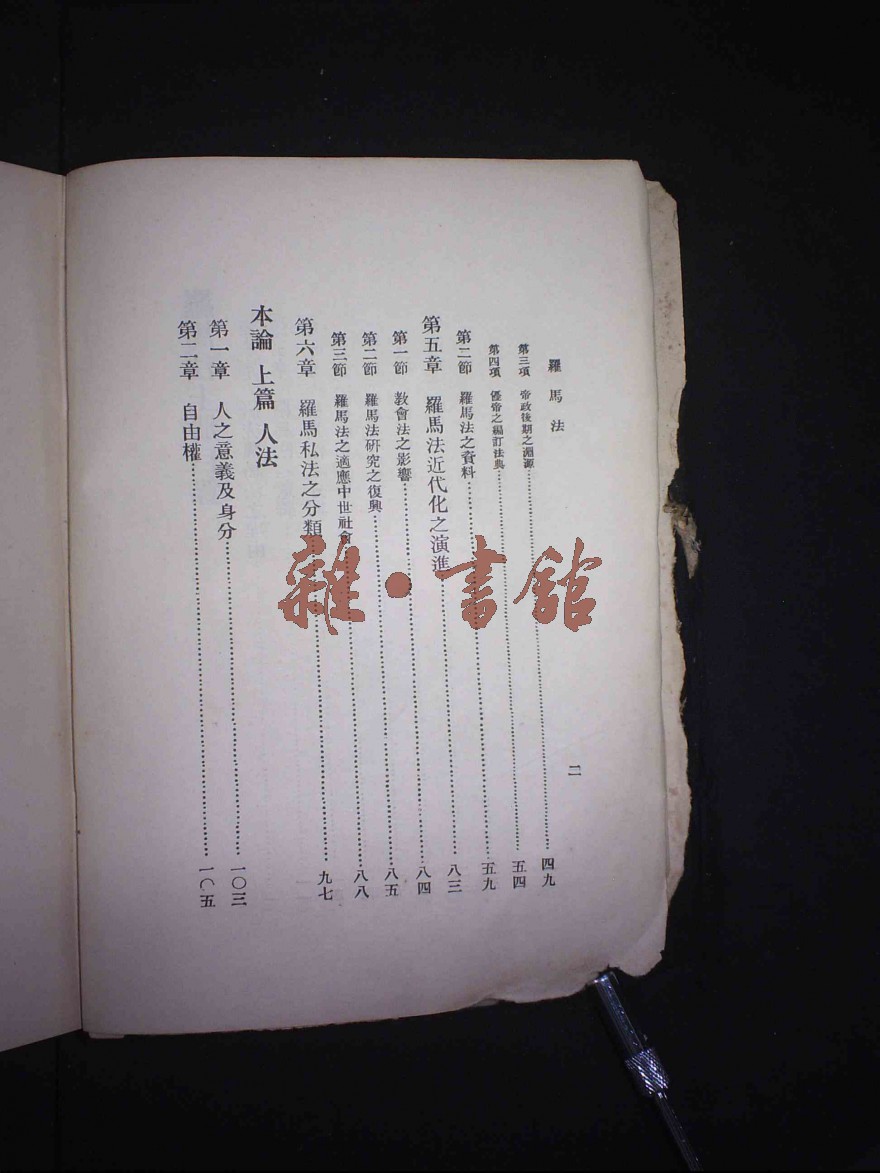 羅馬法
二
第三項 帝政後期之淵源……四九
第四項 優帝之編訂法典……五四
第二節 羅馬法之資料……五九
第五章 羅馬法近代化之演進……八三
第一節 教會法之影響……八四
第二節 羅馬法研究之復興……八五
第三節 羅馬法之適應中世社會……八八
第六章 羅馬私法之分類……九七
本論 上篇 人法
第一章 人之意義及身分……一〇三
第二章 自由權……一〇五
雜·書館